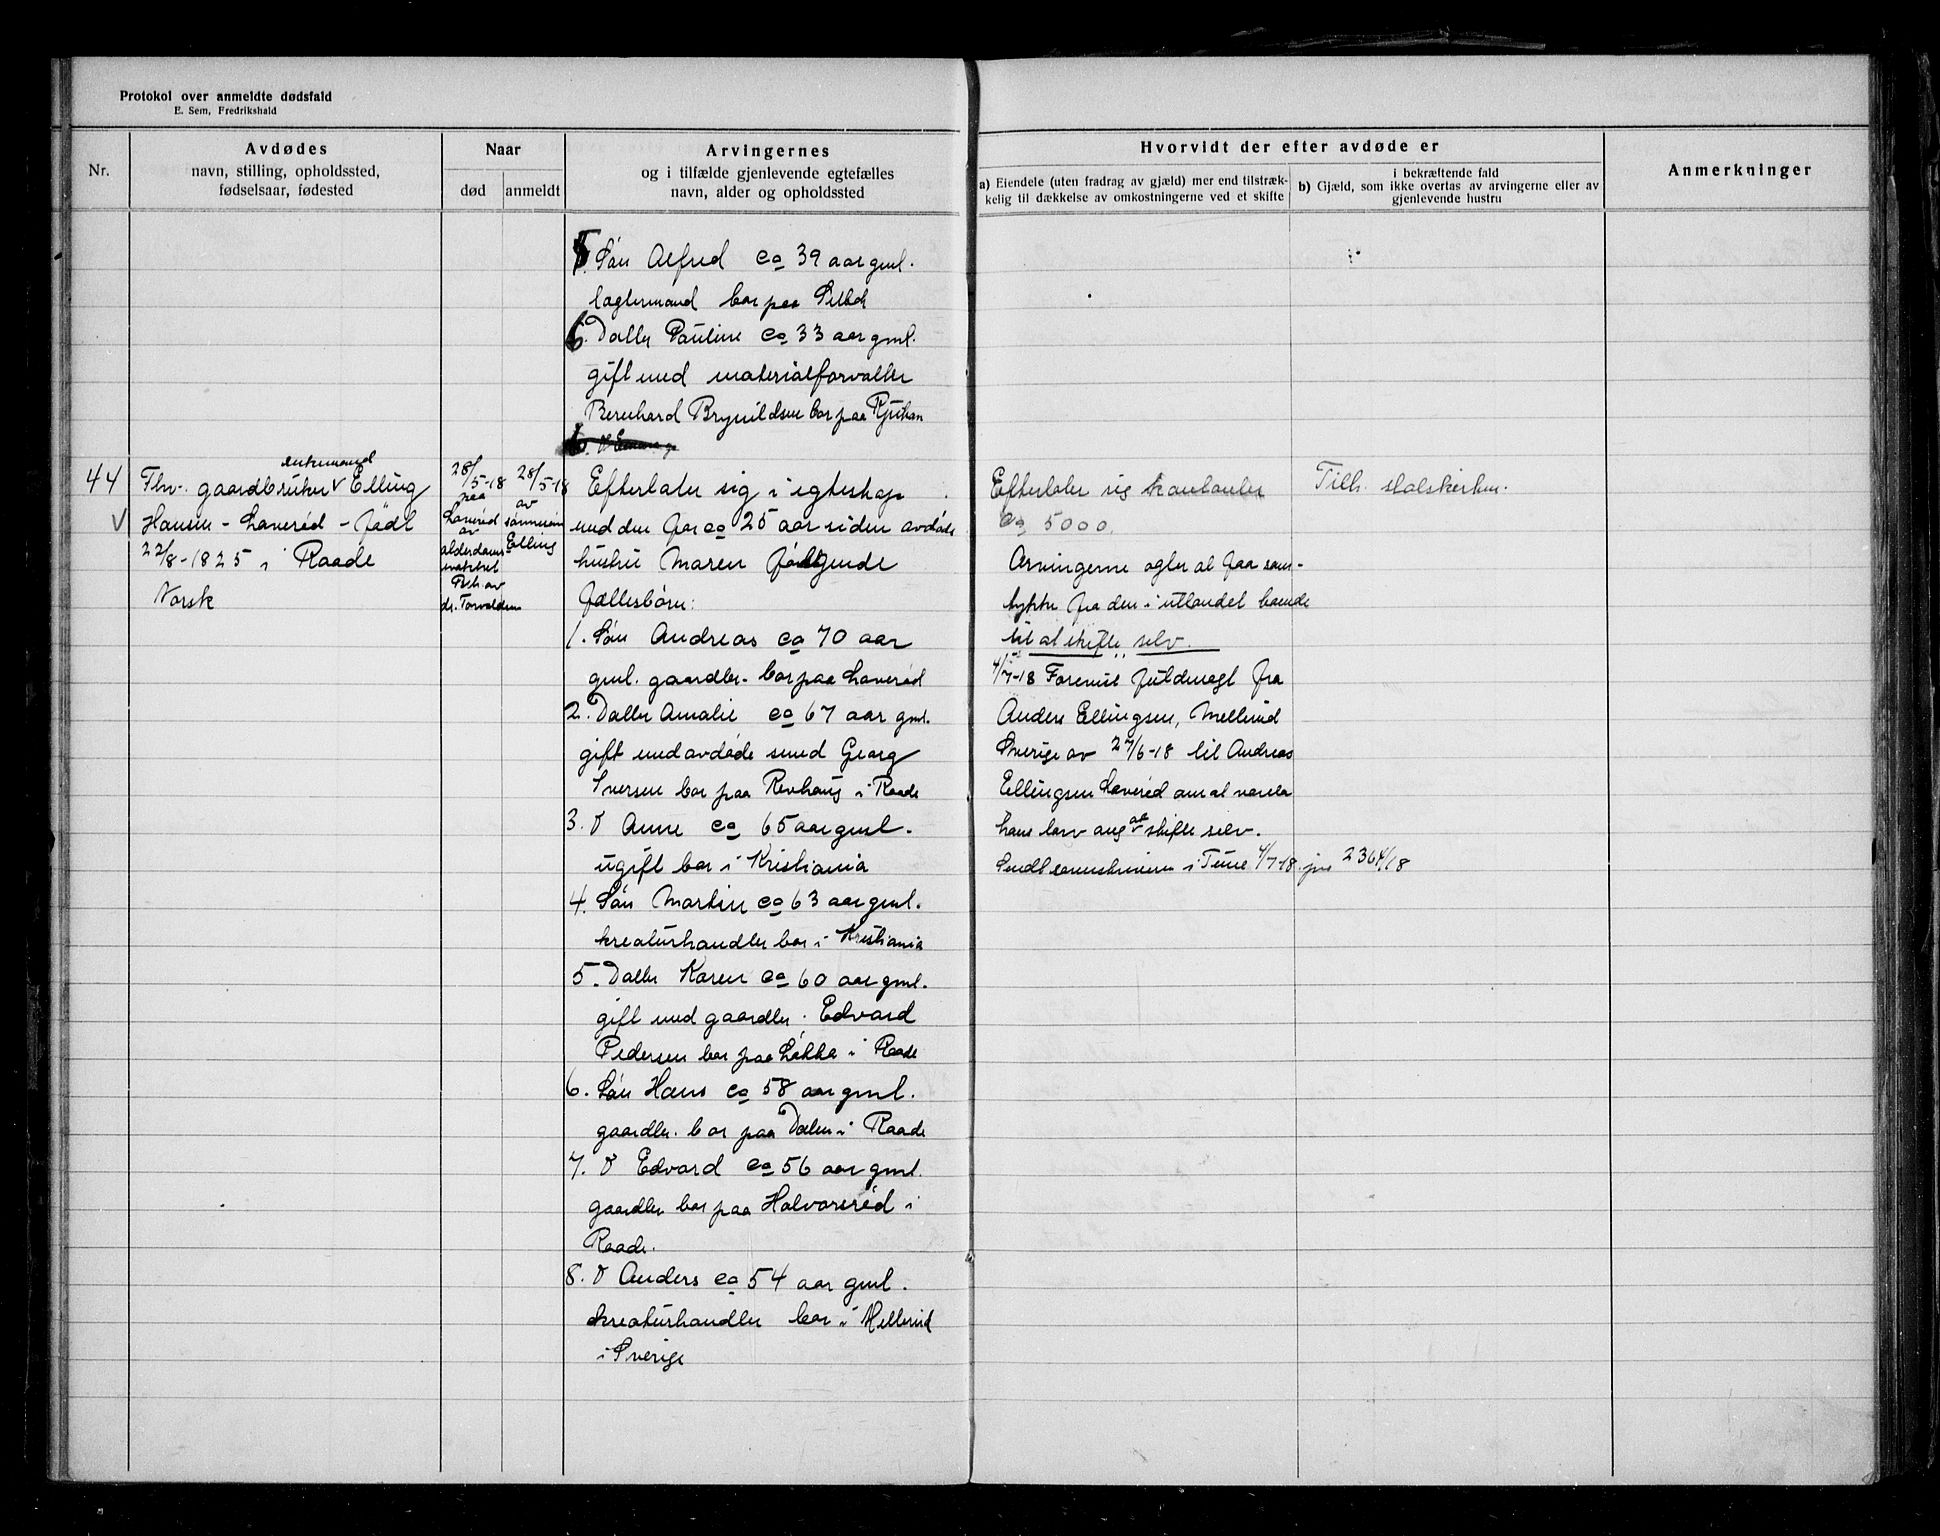 Protokol over anmeldte dødsfald
E. Sem, Fredrikshald
Nr.
Avdødes
navn, stilling, opholdssted,
fødselsaar, fødested
Naar
død
anmeldt
Arvingernes
og i tilfælde gjenlevende egtefælles
navn, alder og opholdssted
Hvorvidt der efter avdøde er
a) Eiendele (uten fradrag av gjæld) mer end tilstræk-
kelig til dækkelse av omkostningerne ved et skifte
i bekræftende fald
b) Gjæld, som ikke overtas av arvingerne eller av
gjenlevende hustru
Anmerkninger
5. Søn Alfred ca 39 aar gml.
bor paa
6. Datter Pauline ca 33 aar gml.
gift med materialforvalter
Bernhard Brynildsen bor paa Rjukan
44
enkemand
Fhv. gaardbruker v Elling
V Hansen - Laverød - født
22/8-1825 i Raade
Norsk
28/5-18
paa
Laverød
av
alderdoms
svakhet
av
dr. Torvaldsen
28/5-18
av
sønnesøn
Elling
Efterlater sig i egteskap
med den for ca 25 aar siden avdøde
hustru Maren følgende
fællesbørn:
1. Søn Andreas ca 70 aar
gml. gaardbr. bor paa Laverød
2. Datter Amalie ca 67 aar gml.
gift med avdøde smed Georg
Iversen bor paa Revhaug i Raade
3. D Anne ca 65 aar gml.
ugift bor i Kristiania
4. Søn Martin ca 63 aar gml.
kreaturhandler bor i Kristiania
5. Datter Karen ca 60 aar gml.
gift med gaardbr. Edvard
Pedersen bor paa Løkka i Raade
6. Søn Hans ca 58 aar gml.
gaardbr. bor paa Dalen i Raade
7. D Edvard ca 56 aar gml.
gaardbr bor paa Halvorsrød i
Raade.
8. D Anders ca 54 aar gml.
kreaturhandler bor i Mellerud
i Sverige
Efterlater sig kontanter
ca 5000.
Arvingerne agter at faa sam-
tykke fra den i utlandet boende
til at skifte selv.
4/7-18 Forevist fuldmagt fra
Anders Ellingsen, Mellerud
Sverige av 27/6-18 til Andreas
Ellingsen Laverød om at vareta
hans tarv ang at skifte selv.
Sendt sorenskriveren i Tune 4/7-18. jnr 2364/18
Tilh. statskirken.